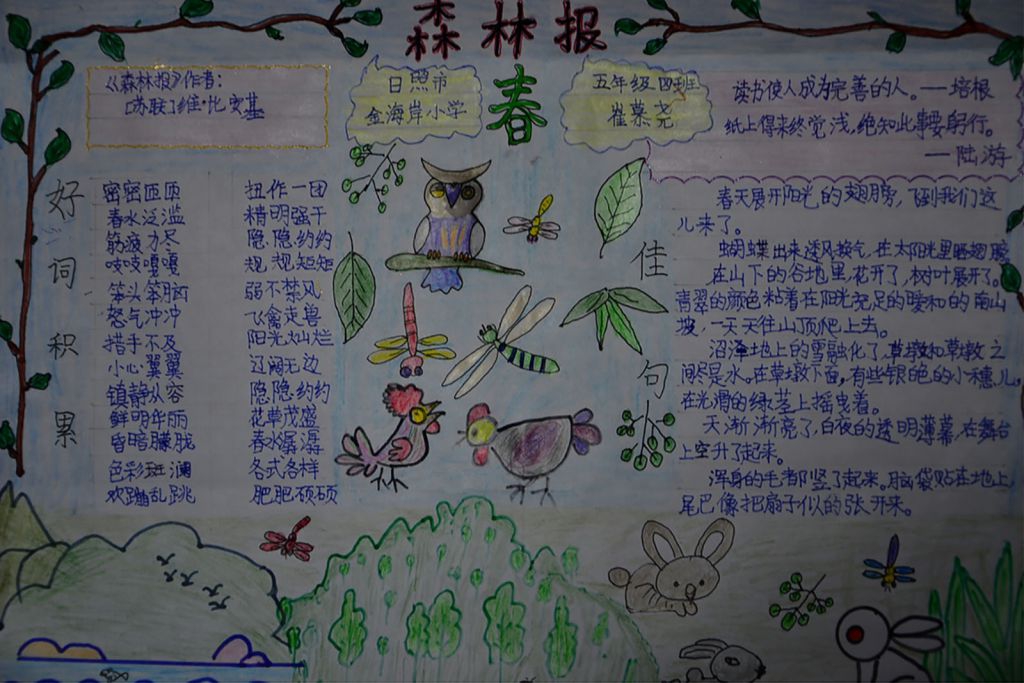 森林报
春
《森林报》作者:
[苏联]维·比安基
日照市
金海岸小学
五年级四班
崔慕尧
读书使人成为完善的人。——培根
纸上得来终觉浅,绝知此事要躬行。
——陆游
好词积累
密密匝匝
扭作一团
春水泛滥
精明强干
筋疲力尽
隐隐约约
吱吱嘎嘎
规规矩矩
笨头笨脑
弱不禁风
怒气冲冲
飞禽走兽
措手不及
阳光灿烂
小心翼翼
辽阔无边
镇静从容
隐隐约约
鲜明华丽
花草茂盛
昏暗朦胧
春水潺潺
色彩斑澜
各式各样
欢蹦乱跳
肥肥硕硕
佳句
春天展开阳光的翅膀,飞到我们这
儿来了。
蝴蝶出来透风换气,在太阳光里晒翅膀
在山下的谷地里,花开了,树叶展开了。
青翠的颜色粘着在阳光充足的暖和的南山
坡,一天天往山顶爬上去。
沼泽地上的雪融化了,草墩和草墩之
间尽是水。在草墩下面,有些银色的小穗儿,
在光滑的绿茎上摇曳着。
天渐渐亮了,白夜的透明薄幕,在舞台
上空升了起来。
浑身的毛都竖了起来。脑袋贴在地上,
尾巴像把扇子似的张开来。